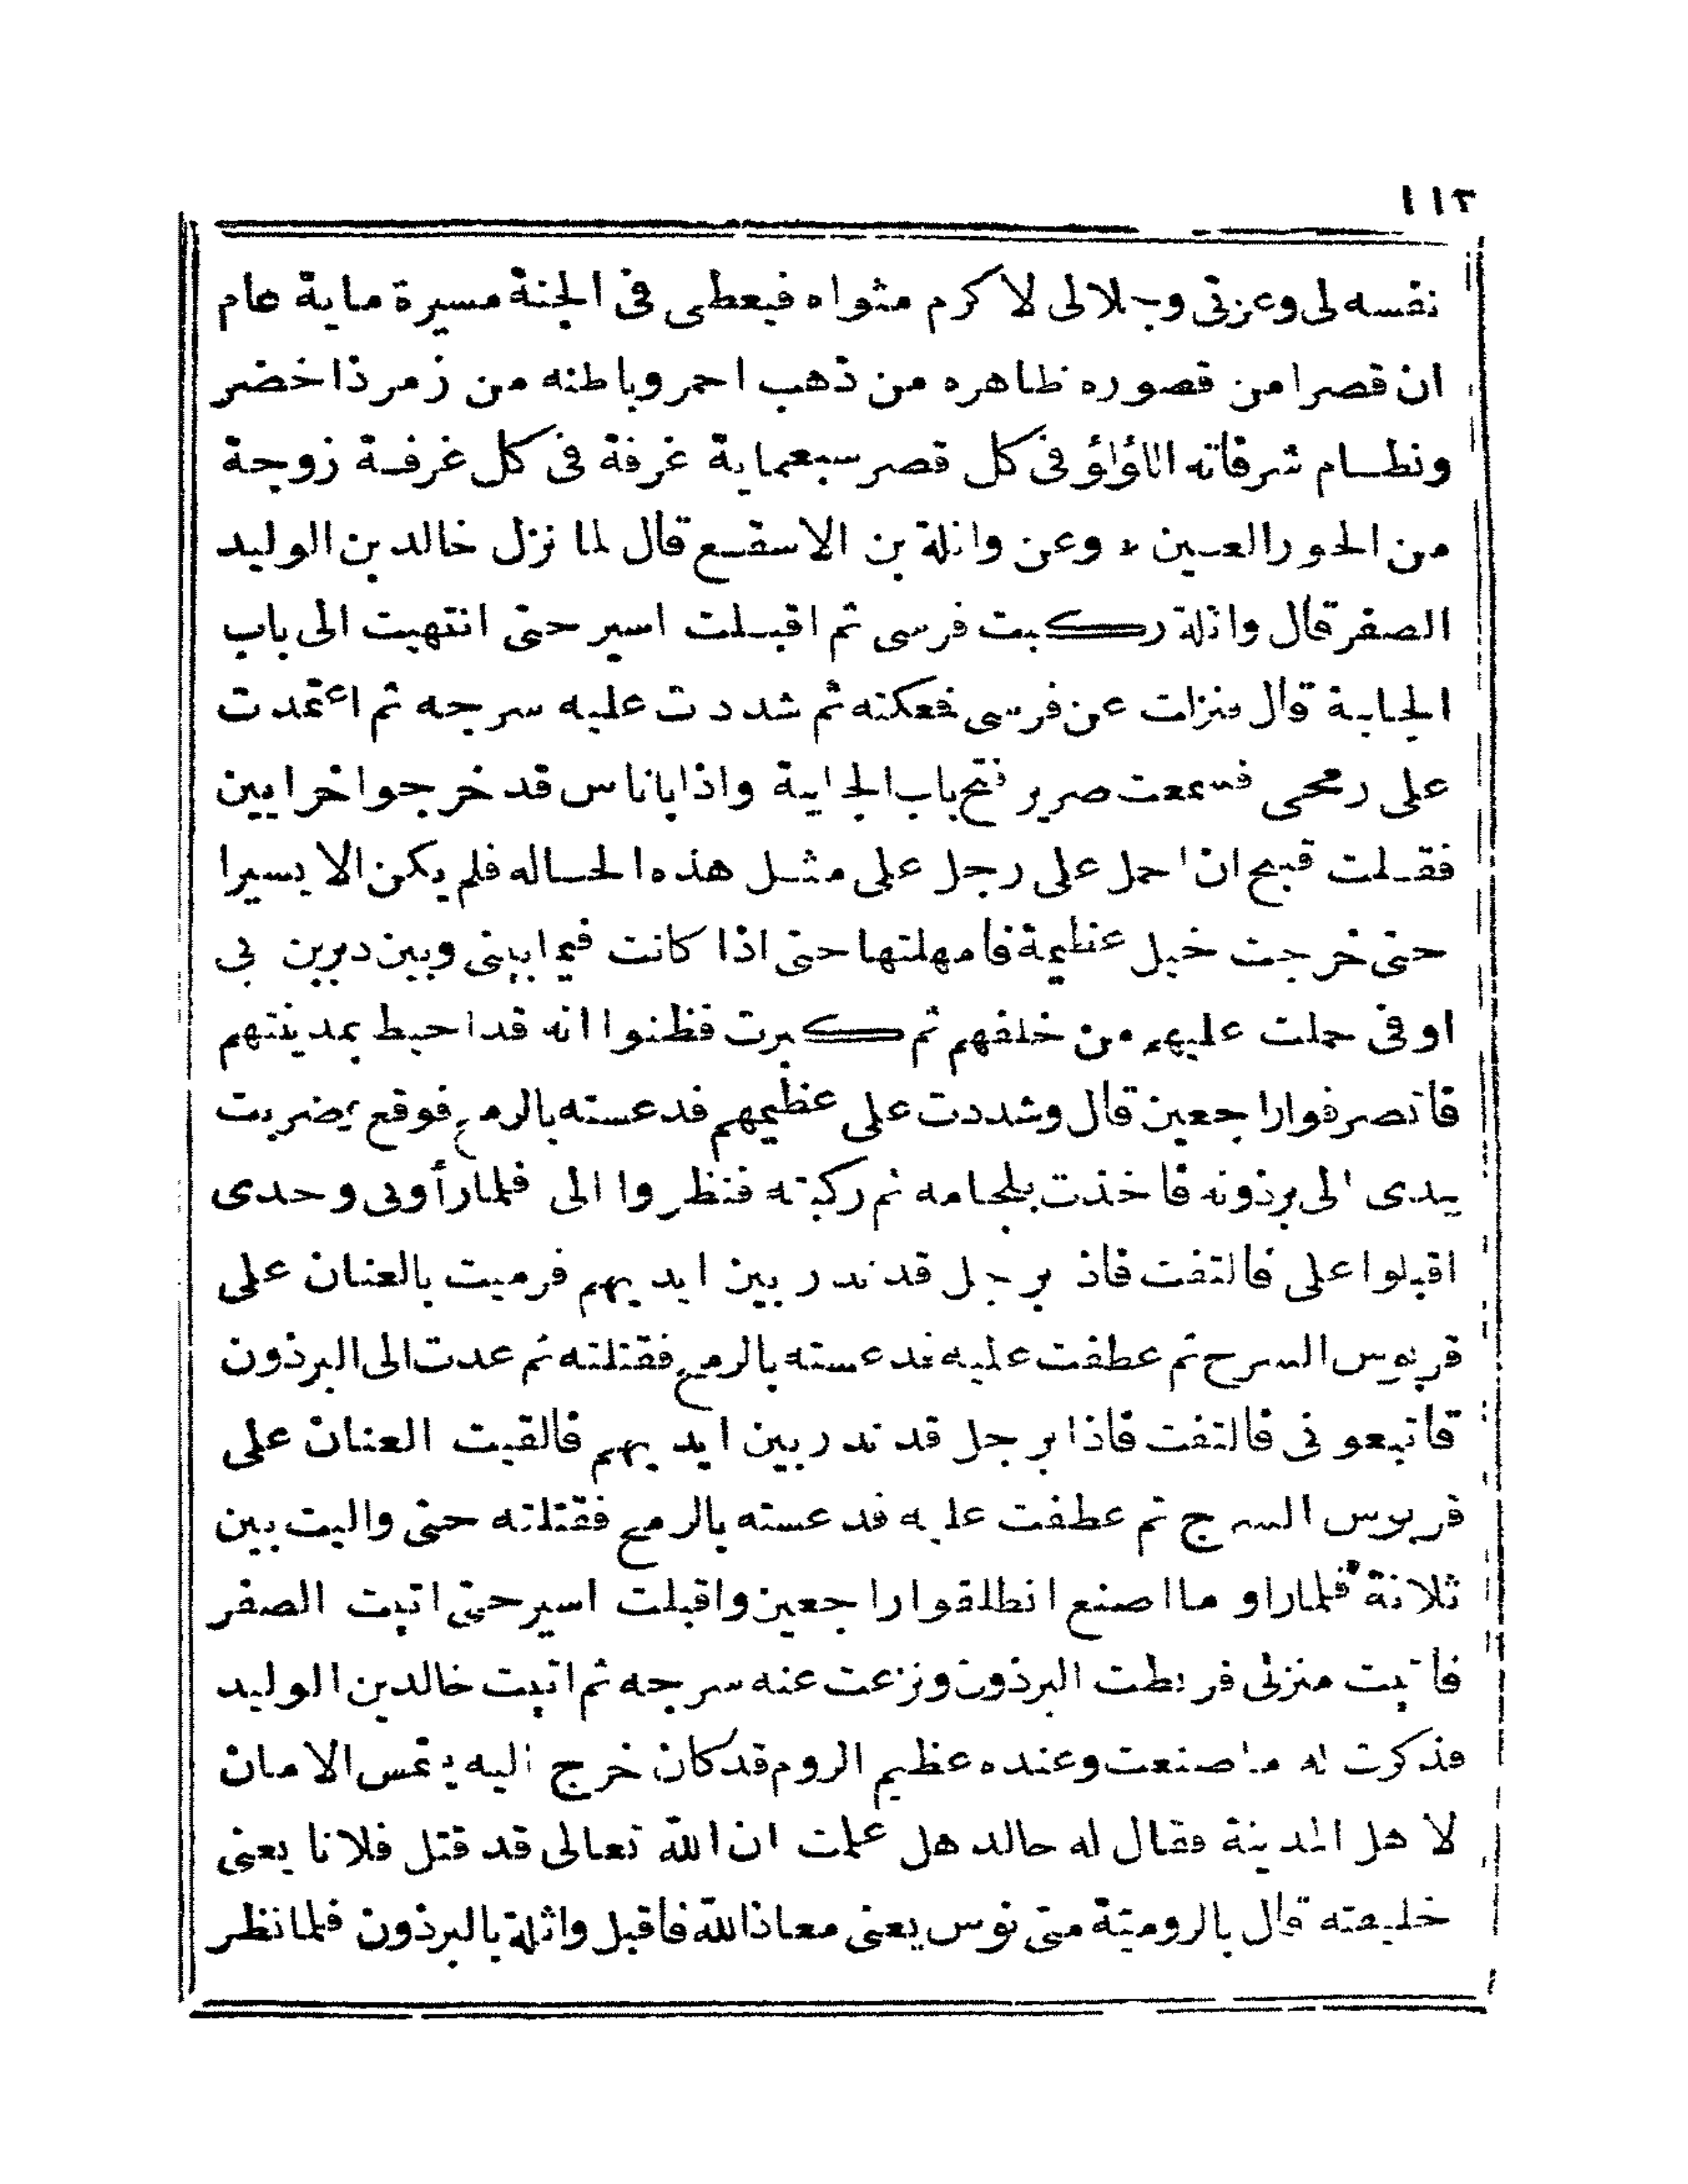 ١١٣
نفسه لى وعزتى وجلالى لاكرم مثواه فيعطى فى الجنة مسيرة ماية عام
ان قصرا من قصوره ظاهره من ذهب احمر وباطنه من زمرذ اخضر
ونظام شرفاته اللؤلؤ فى كل قصر سبعماية غرفة فى كل غرفة زوجة
من الحور العين * وعن واثلة بن الاسقع قال لما نزل خالد بن الوليد
الصفر قال واثلة ركبت فرسى ثم اقبلت اسير حتى انتهيت الى باب
الجابية قال فنزلت عن فرسى فعكته ثم شددت عليه سرجه ثم اعتمدت
على رمحى فسمعت صرير فتح باب الجابية واذا باناس قد خرجوا خرايين
فقلت قبيح ان احمل على رجل على مثل هذه الحاله فلم يكن الا يسيرا
حتى خرجت خيل عظيمة فامهلتها حتى اذا كانت فيما بينى وبين ديرين بى
اوفى حملت عليهم من خلفهم ثم كبرت فظنوا انه قد احيط بمدينتهم
فانصرفوا راجعين قال وشددت على عظيمهم فدعسته بالرمح فوقع يضربت
يدى الى برذونه فاخذت بلجامه ثم ركبته فنظروا الى فلما رأونى وحدى
اقبلوا على فالتفت فاذ برجل قد ندر بين ايديهم فرميت بالعنان على
قربوس السرج ثم عطفت عليه فدعسته بالرمح فقتلته ثم عدت الى البرذون
فاتبعونى فالتفت فاذا برجل قد ندر بين ايديهم فالقيت العنان على
قربوس السرج ثم عطفت عليه فدعسته بالرمح فقتلته حتى واليت بين
ثلاثة فلما راو ما اصنع انطلقوا راجعين واقبلت اسير حتى اتيت الصفر
فاتيت منزلى فربطت البرذون ونزعت عنه سرجه ثم اتيت خالد بن الوليد
فذكرت له ما صنعت وعنده عظيم الروم قد كان خرج اليه يلتمس الامان
لاهل المدينة فقال له خالد هل علمت ان الله تعالى قد قتل فلانا يعنى
خليفته قال بالروميّة متى نوس يعنى معاذ الله فاقبل واثلة بالبرذون فلما نظر